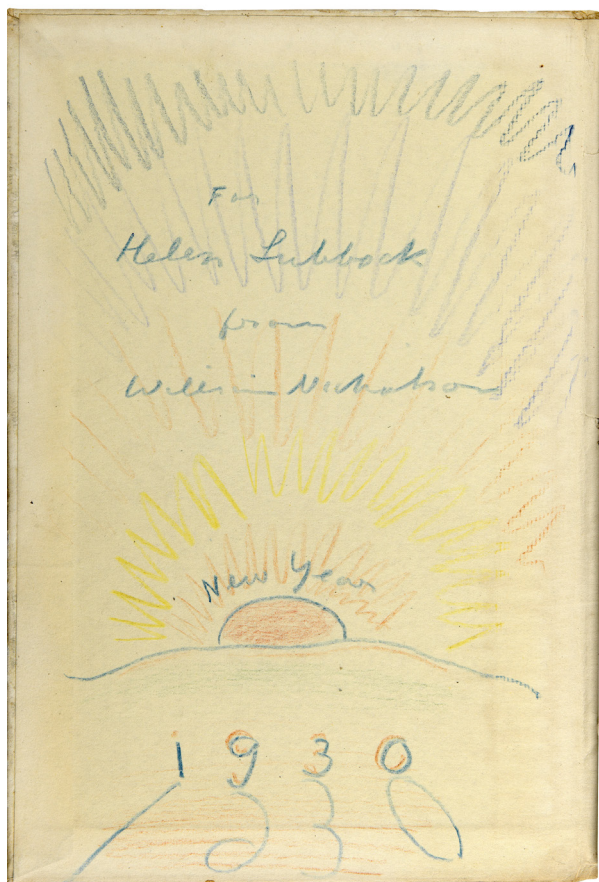 For
Helen Lubbock
from
William Nicholson
New Year
1930